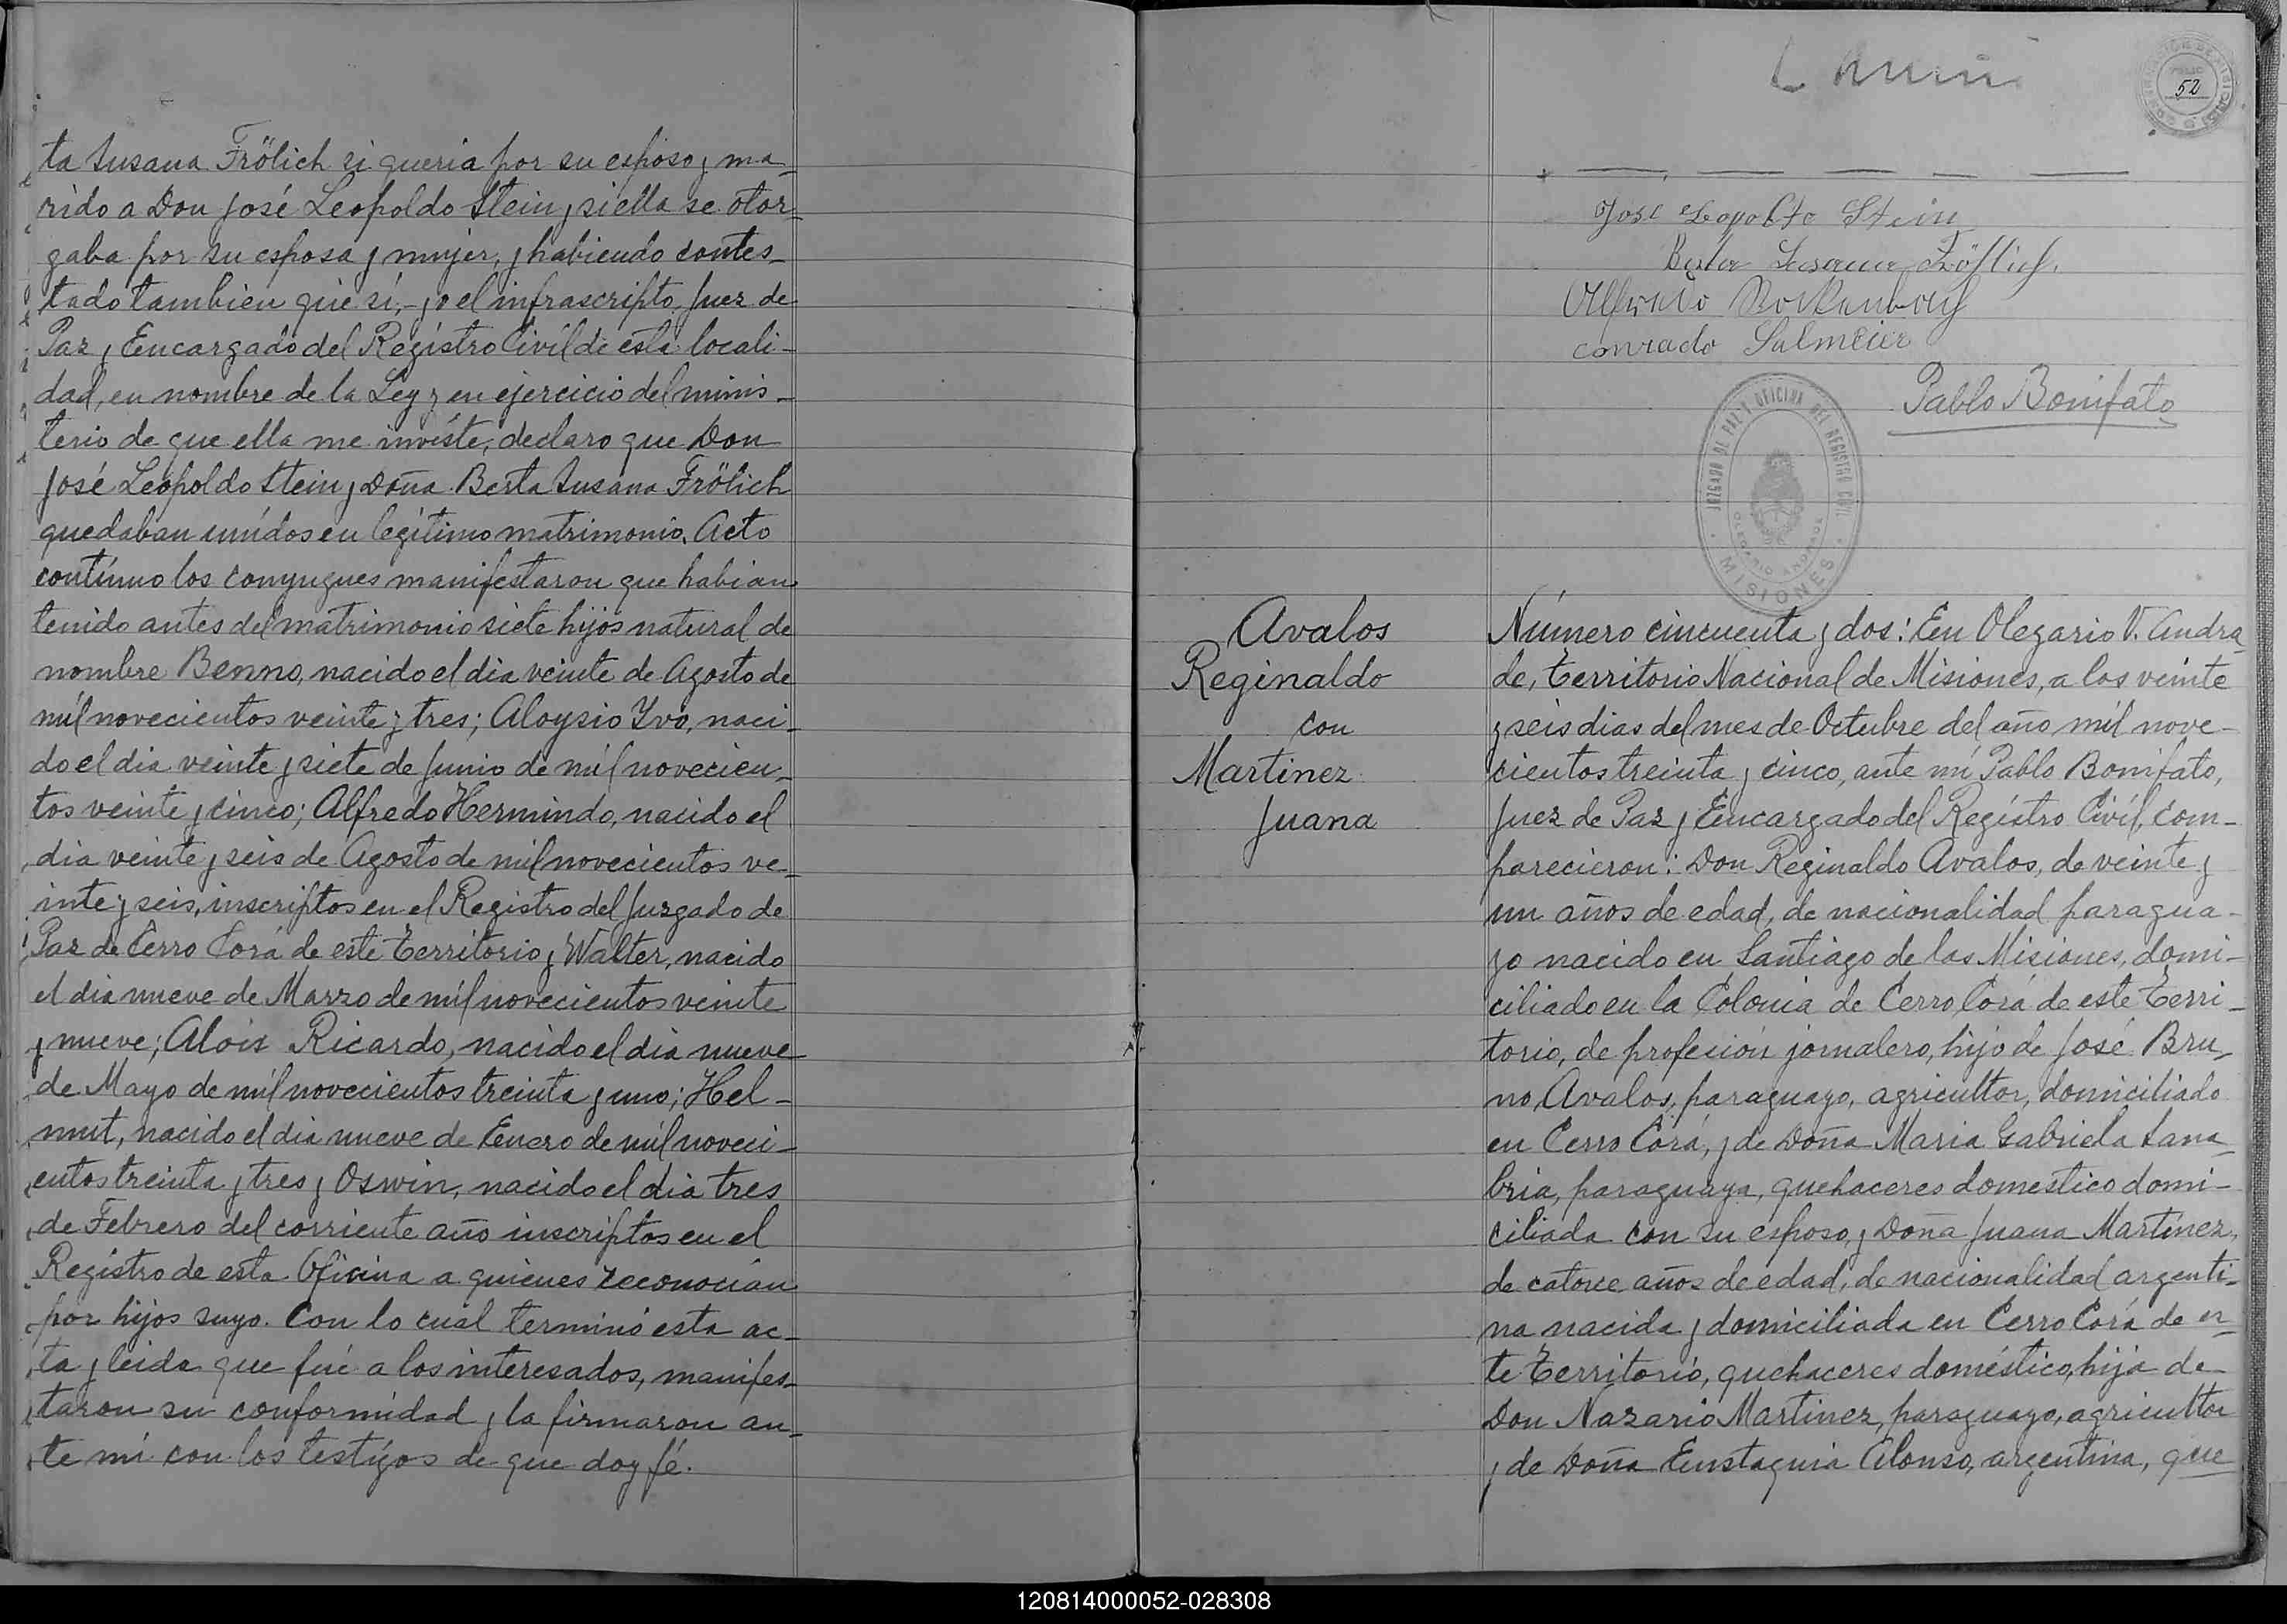 ta Susana Frölich si queria por su esposo y ma-
rido a Don José Leopoldo Stein y si ella se otor-
gaba por su esposa y mujer, y habiendo contes-
tado tambien que sí,- yo el infrascripto Juez de
Paz y Encargado del Regístro Civíl de esta locali-
dad, en nombre de la Ley y en ejercicio del minis-
terio de que ella me invíste, declaro que Don
José Leopoldo Stein y Doña Berta Susana Frölich
quedaban unídos en legítimo matrimonio. Acto
contínuo los conyugues manifestaron que habian
tenido antes del matrimonio siete hijos natural de
nombre Benno, nacido el dia veinte de Agosto de
míl novecientos veinte y tres; Aloysio Yvo, naci-
do el dia veinte y siete de Junio de míl novecien-
tos veinte y cinco; Alfredo Hermindo, nacido el
dia veinte y seis de Agosto de míl novecientos ve-
inte y seis, inscriptos en el Registro del Juzgado de
Paz de Cerro Corá de este territorio y Walter, nacido
el dia nueve de Marzo de míl novecientos veinte
y nueve; Alois Ricardo, nacido el dia nueve
de Mayo de míl novecientos treinta y uno; Hel-
mut, nacido el dia nueve de Enero de míl noveci-
entos treinta y tres y Oswin, nacido el dia tres
de Febrero del corriente año inscriptos en el
Registro de esta Oficina a quienes reconocían
por hijos suyo. Con lo cual terminó esta ac-
ta y leida que fué a los interesados, manifes-
taron su conformidad y la firmaron an-
te mí con los testígos de que doy fé.
52
José Leopoldo Stein
Berta Susana Fröhlich.
Alfredo
conrado Salmeier
Pablo Bonifato
JUZGADO DE PAZ Y OFICINA DEL REGISTRO CIVIL
OLEGARIO ANDRADE
MISIONES
Avalos
Reginaldo
con
Martinez
Juana
Número cincuenta y dos: En Olegario V. Andra-
de, territorio Nacional de Misiones, a los veinte
y seis dias del mes de Octubre del año míl nove-
cientos treinta y cinco, ante mí Pablo Bonifato,
Juez de Paz y Encargado del Regístro Civíl, com-
parecieron: Don Reginaldo Avalos, de veinte y
un años de edad, de nacionalidad paragua-
yo nacido en Santiago de las Misiones, domi-
ciliado en la Colonia de Cerro Corá de este terri-
torio, de profesión jornalero, hijo de José Bru-
no Avalos, paraguayo, agricultor, domiciliado
en Cerro Corá, y de Doña Maria Gabriela Sana-
bria, paraguaya, quehaceres domestico domi-
ciliada con su esposo, y Doña Juana Martínez,
de catorce años de edad, de nacionalidad argenti-
na nacida y domiciliada en Cerro Corá de es-
te territorio, quehaceres doméstico, hija de
Don Nazario Martinez, paraguayo, agricultor
y de Doña Eustaquia Alonso, argentina, que
120814000052-028308